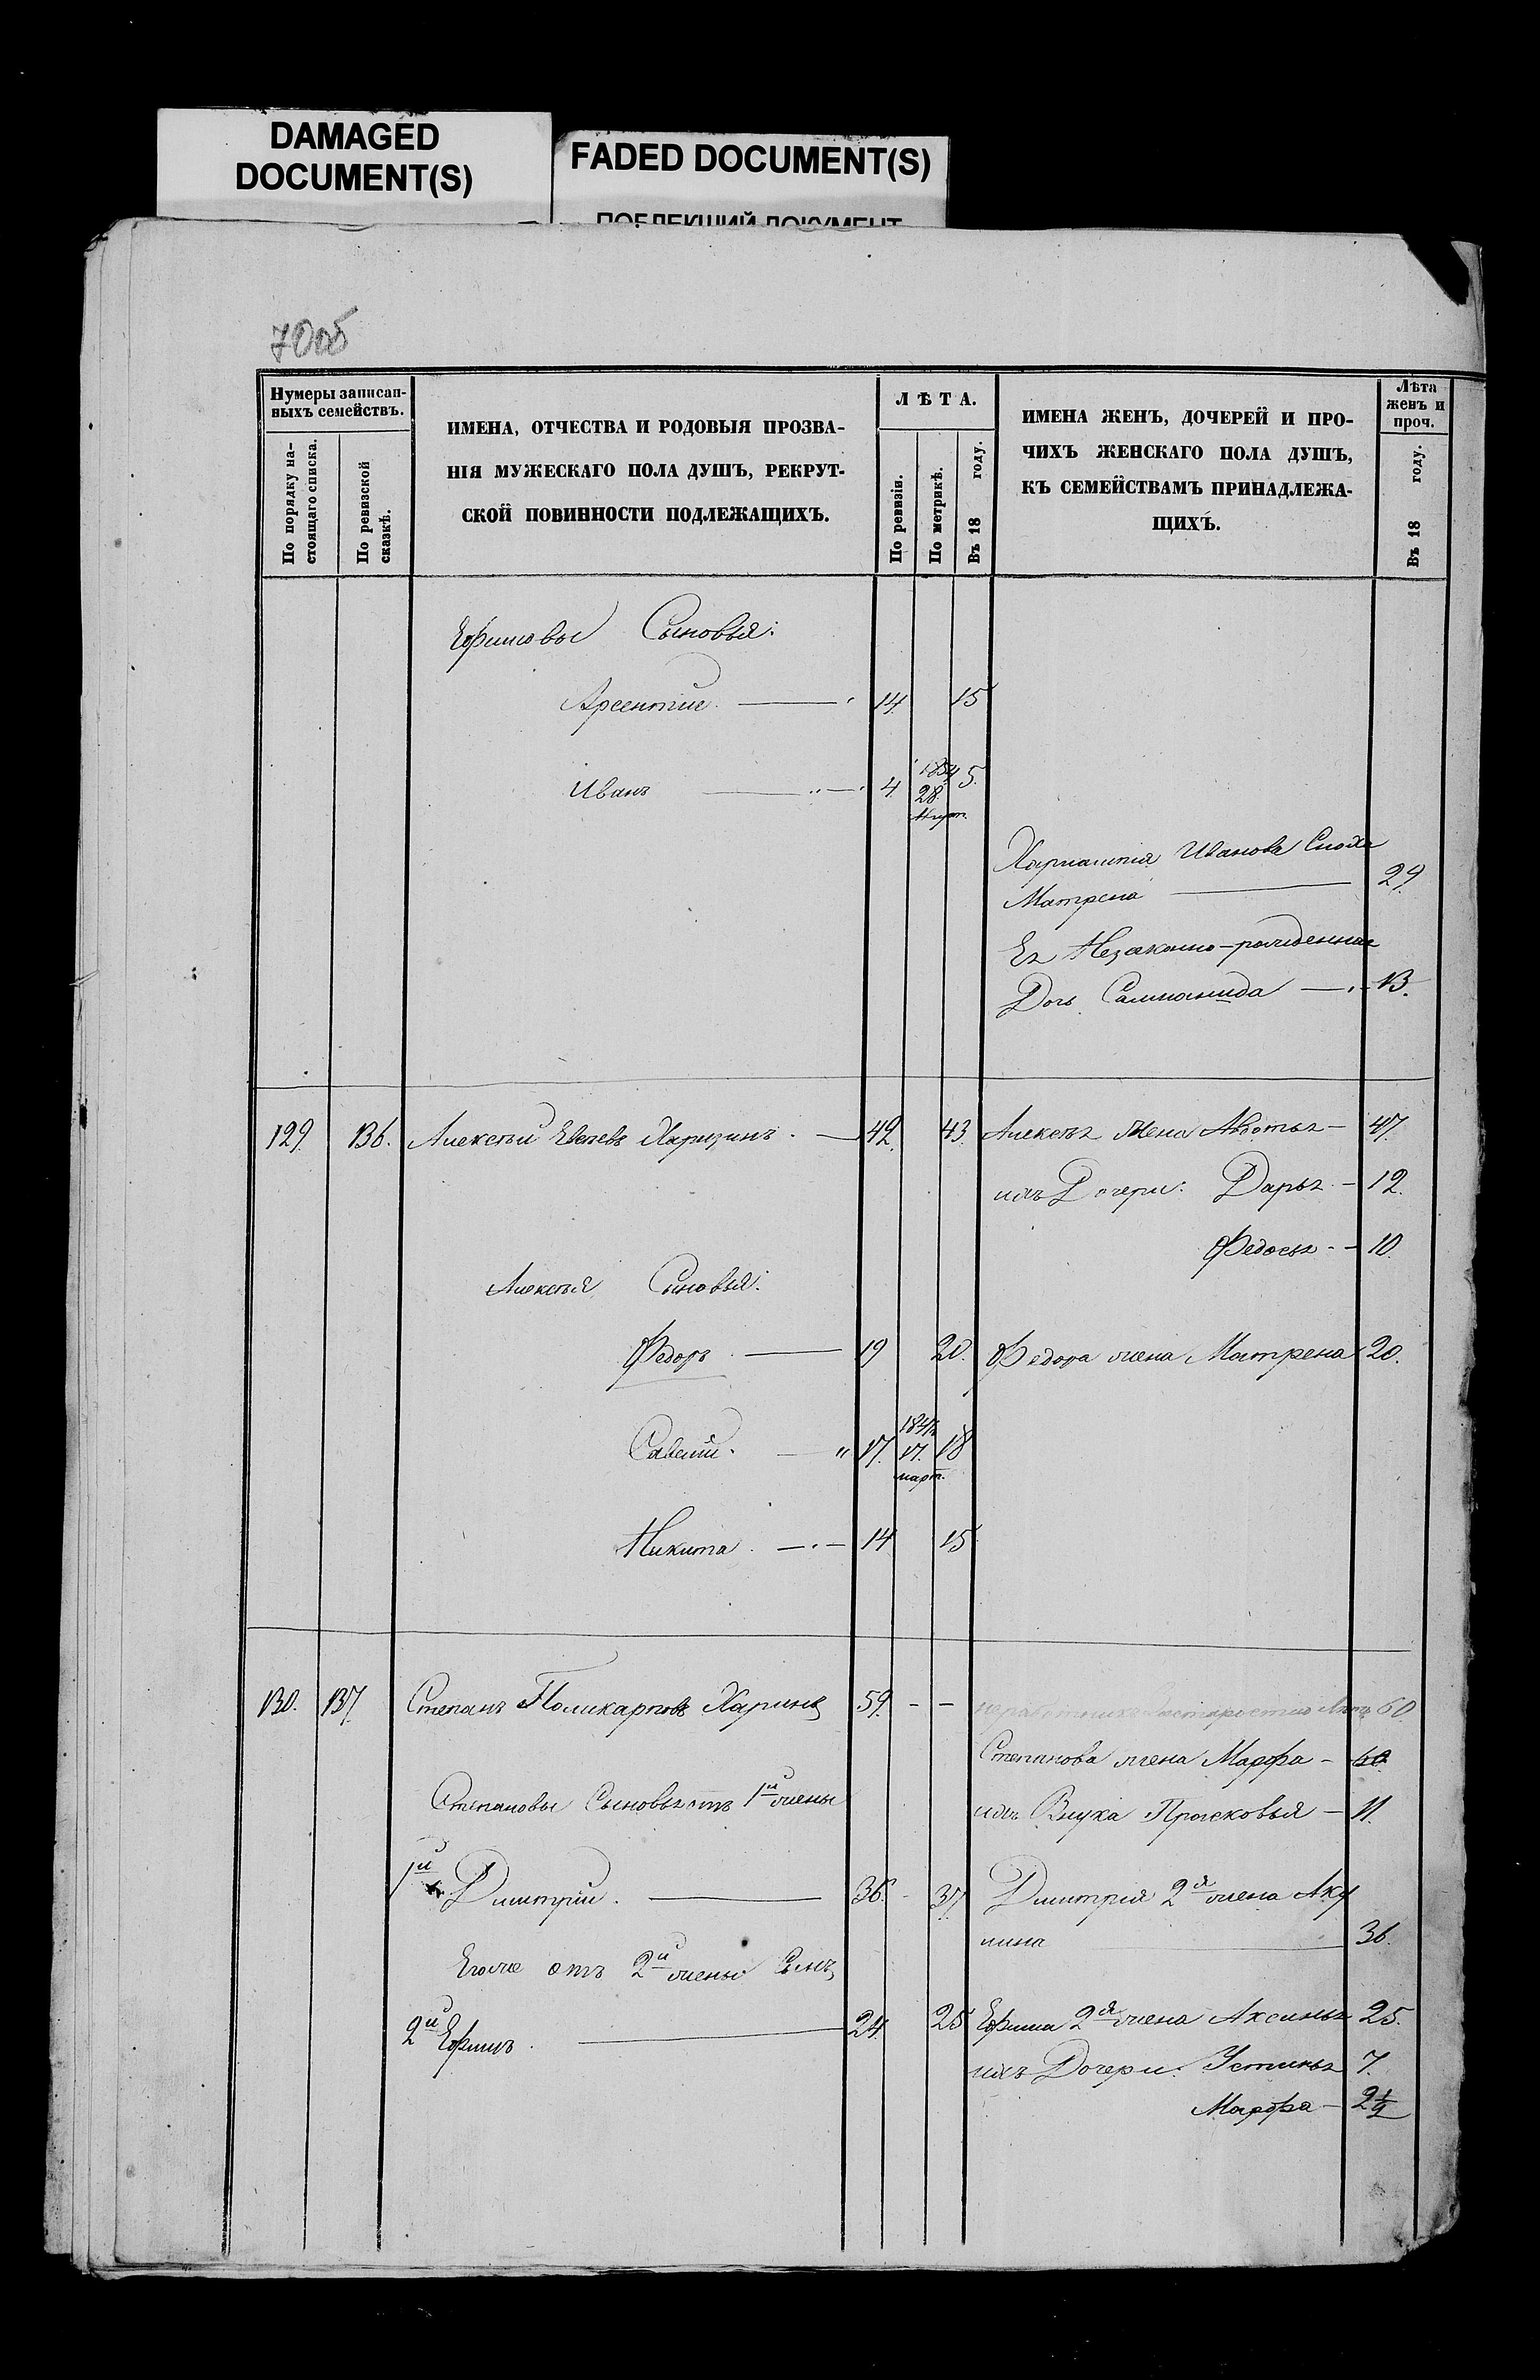 DAMAGED
DOCUMENT(S)
FADED DOCUMENT(S)
ПОБЛЕКШИЙ ДОКУМЕНТ
70об
Нумеры записан-
ныхъ семействъ.
По порядку на-
стоящаго списка.
По ревизской
сказкѣ.
ИМЕНА, ОТЧЕСТВА И РОДОВЫЯ ПРОЗВА-
НІЯ МУЖЕСКАГО ПОЛА ДУШЪ, РЕКРУТ-
СКОЙ ПОВИННОСТИ ПОДЛЕЖАЩИХЪ.
ЛѢТА.
По ревизіи.
По метрикѣ.
Въ 18 году.
ИМЕНА ЖЕНЪ, ДОЧЕРЕЙ И ПРО-
ЧИХЪ ЖЕНСКАГО ПОЛА ДУШЪ,
КЪ СЕМЕЙСТВАМЪ ПРИНАДЛЕЖА-
ЩИХЪ.
Лѣта
женъ и
проч.
Въ 18 году.
Ефимовы Сыновья:
Арсентие — 14. 15
Иванъ — 4. 1854 28. 5.
Иванова Сноха
Матрена — 29.
Ея Незаконно-рожденная
Дочь — 13.
129. 136. Алексѣй Харизинъ. — 42. 43. Алексѣя Жена Авдотья — 47.
ихъ Дочери: Дарья — 12.
Федосья — 10.
Алексѣя Сыновья:
Федоръ — 19 20. Федора жена Матрена 20.
Савелій. — 17. 17. март. 18
Никита. — 14 15
130. 137. Степанъ Поликарповъ 59. — — 60.
Степанова жена Марфа — 60
Степановы Сыновья отъ 1й жены
ихъ Внука Прасковья — 11.
1й Дмитрий. — 36. 37. Дмитрия 2я жена Аку
лина — 36.
Егоже отъ 2й жены Сынъ
2й Ефимъ. — 24. 25 Ефима 2я жена Аксинья 25.
ихъ Дочери: Устинья 7.
Марфа — 2½